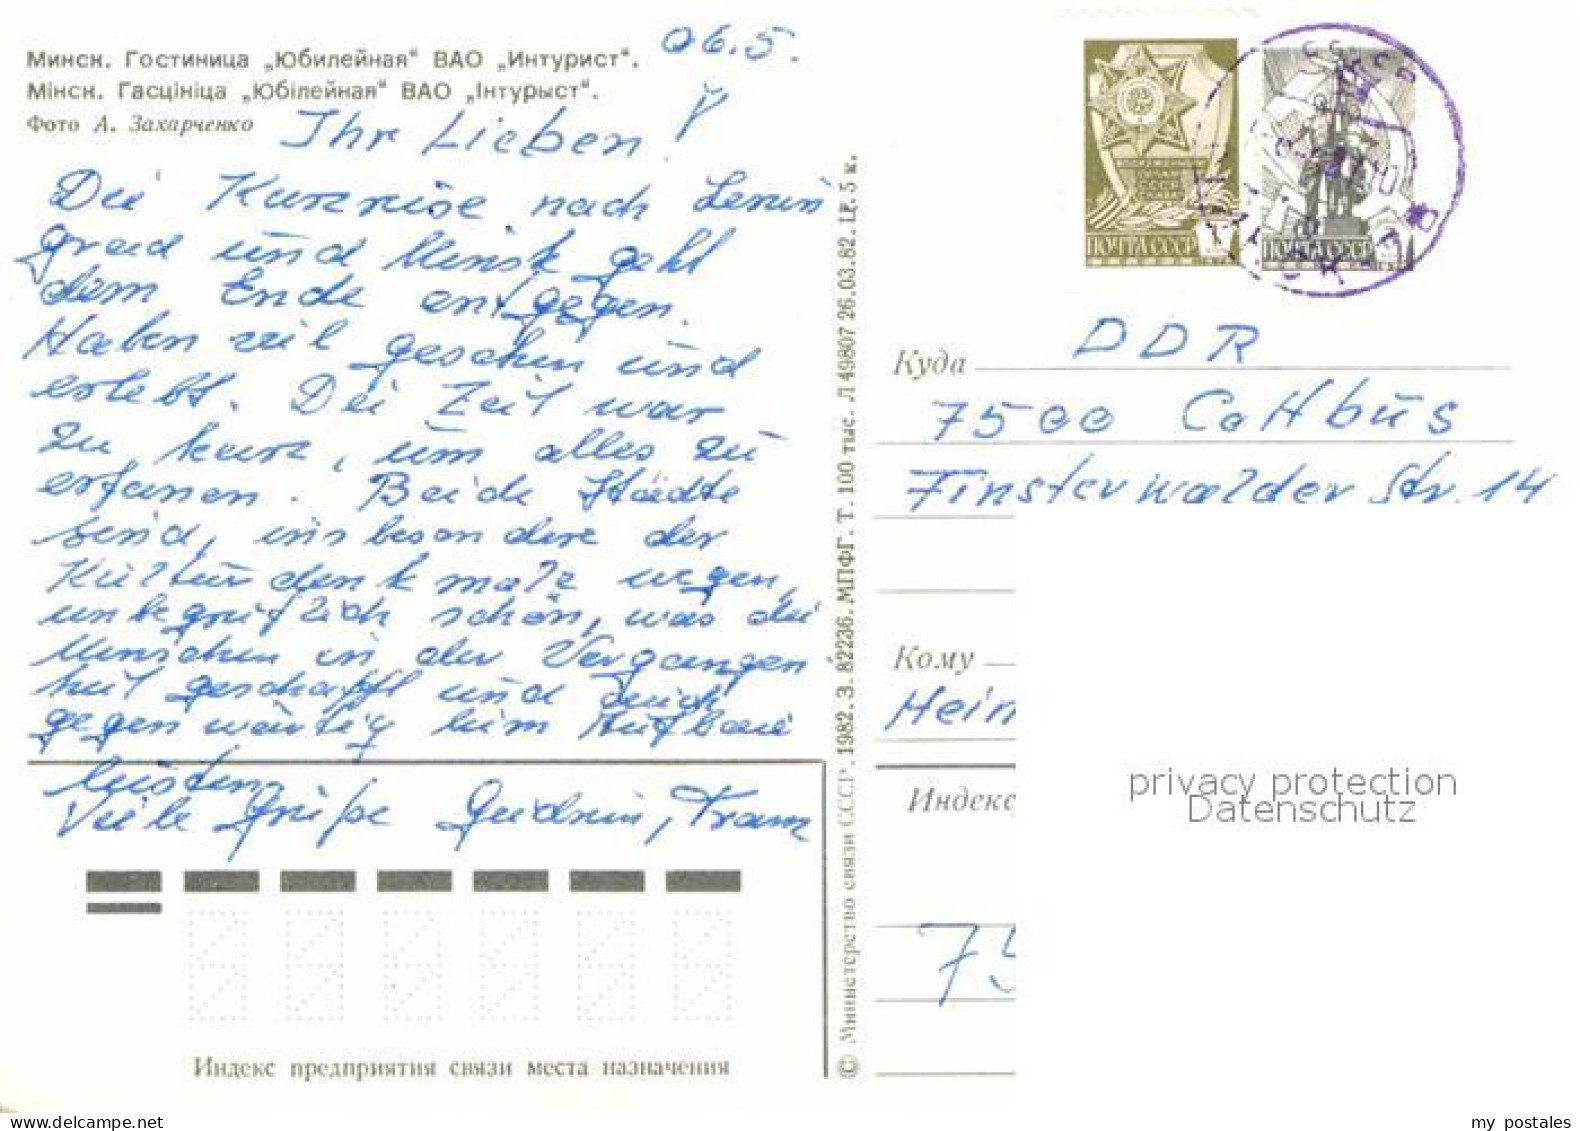 Минск. Гостиница „Юбилейная“ ВАО „Интурист“.
Мінск. Гасцініца „Юбілейная“ ВАО „Інтурыст“.
Фото А. Захарченко
06.5.
Ihr Lieben!
Die Kurzreise nach Lenin
grad und Minsk geht
dem Ende entgegen.
Haben viel gesehen und
erlebt. Die Zeit war
zu kurz, um alles zu
erfassen. Beide Städte
sind, insbesondere der
Kulturdenkmale wegen,
unbegreiflich schön, was die
Menschen in der Vergangen
heit geschafft und auch
gegenwärtig beim Aufbau
leisten.
Viele Grüße Gudrun, Franz
© Министерство связи СССР. 1982. З. 82236. МПФГ. Т. 100 тыс. Л 49807 26.03.82. Ц. 5 к.
ПОЧТА СССР
ПОЧТА СССР
Куда DDR
7500 Cottbus
Finsterwalder Str. 14
Кому
Hein
Индекс
75
privacy protection
Datenschutz
Индекс предприятия связи места назначения
www.delcampe.net
my_postales